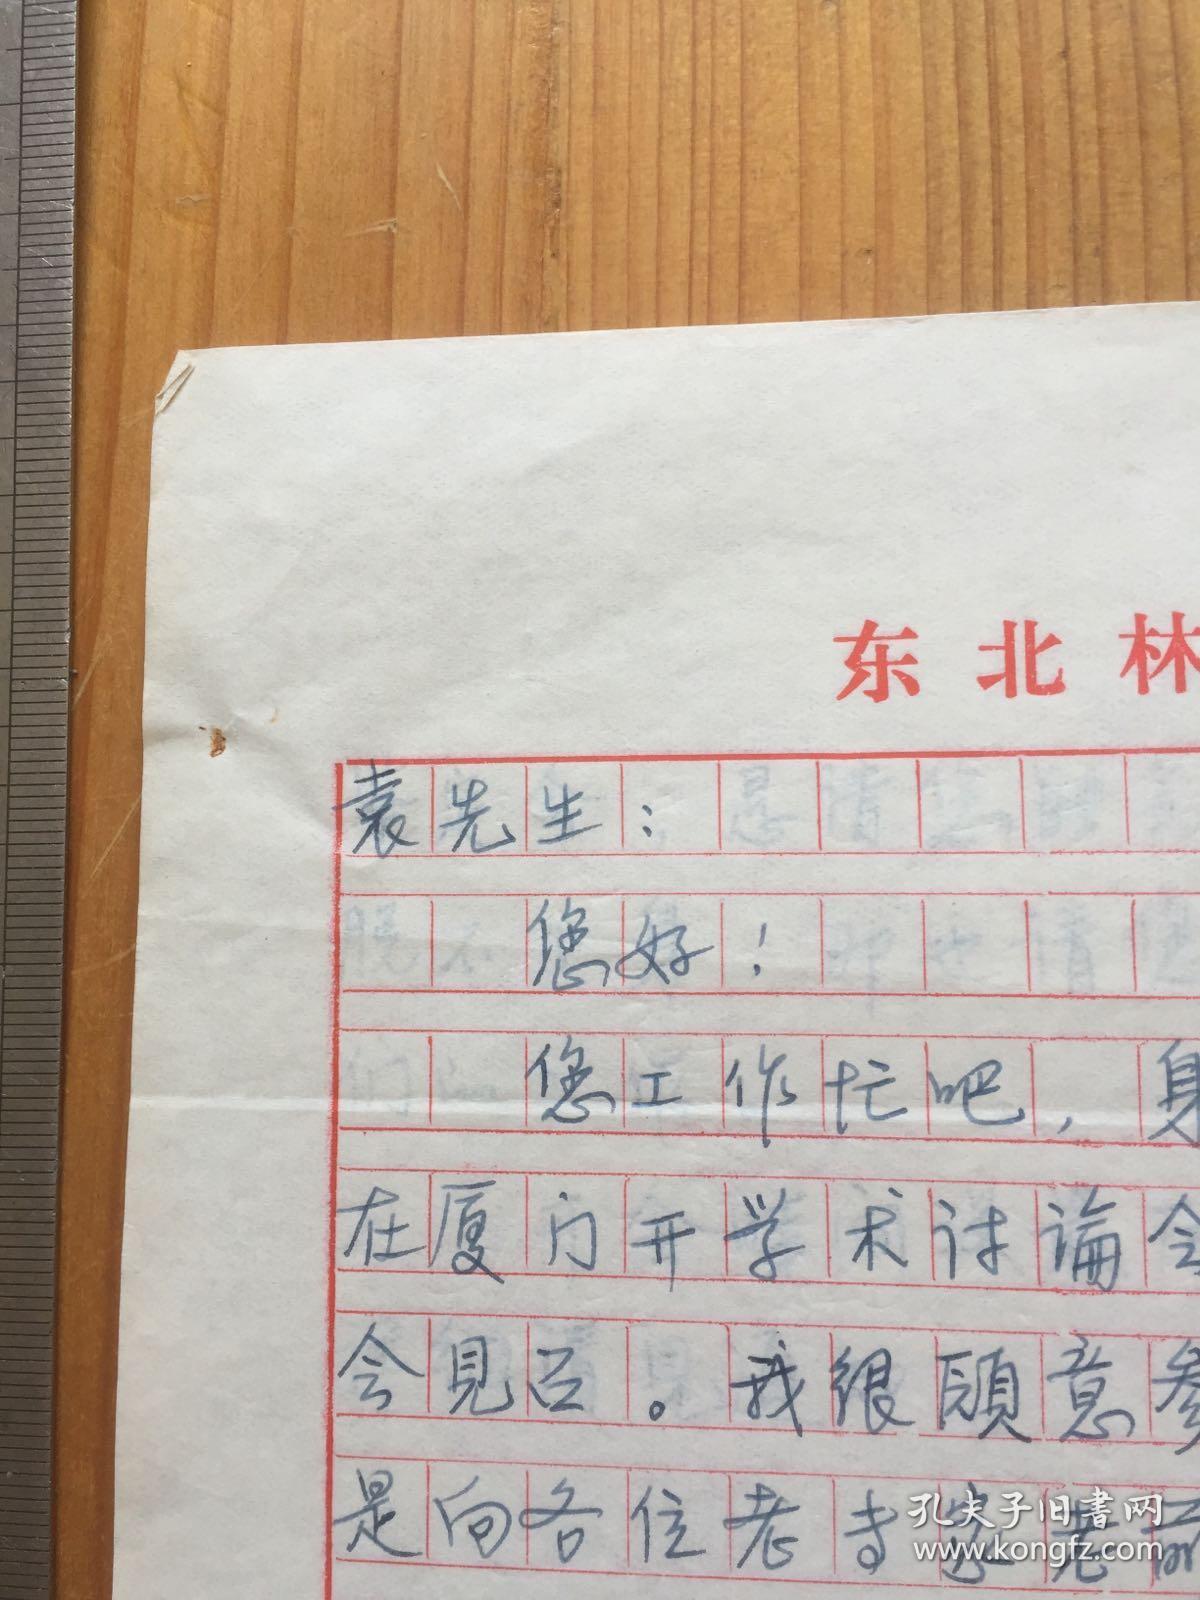 东北林
袁先生：
您好！
您工作忙吧，身
在厦门开学术讨论会
会見否。我很願意参
是向各位老专家老前
孔夫子旧書网
www.kongfz.com